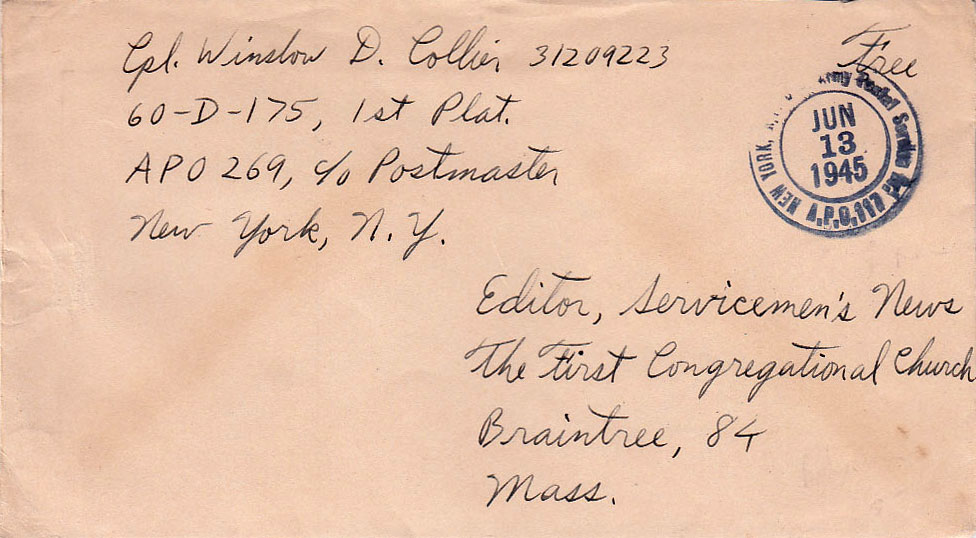 Cpl. Winslow D. Collier 31209223
60-D-175, 1st Plat.
APO 269, c/o Postmaster
New York, N.Y.
Free
Army Postal Service
JUN
13
1945
A.P.O. 117
NEW YORK,
Editor, Servicemen's News
The First Congregational Church
Braintree, 84
Mass.